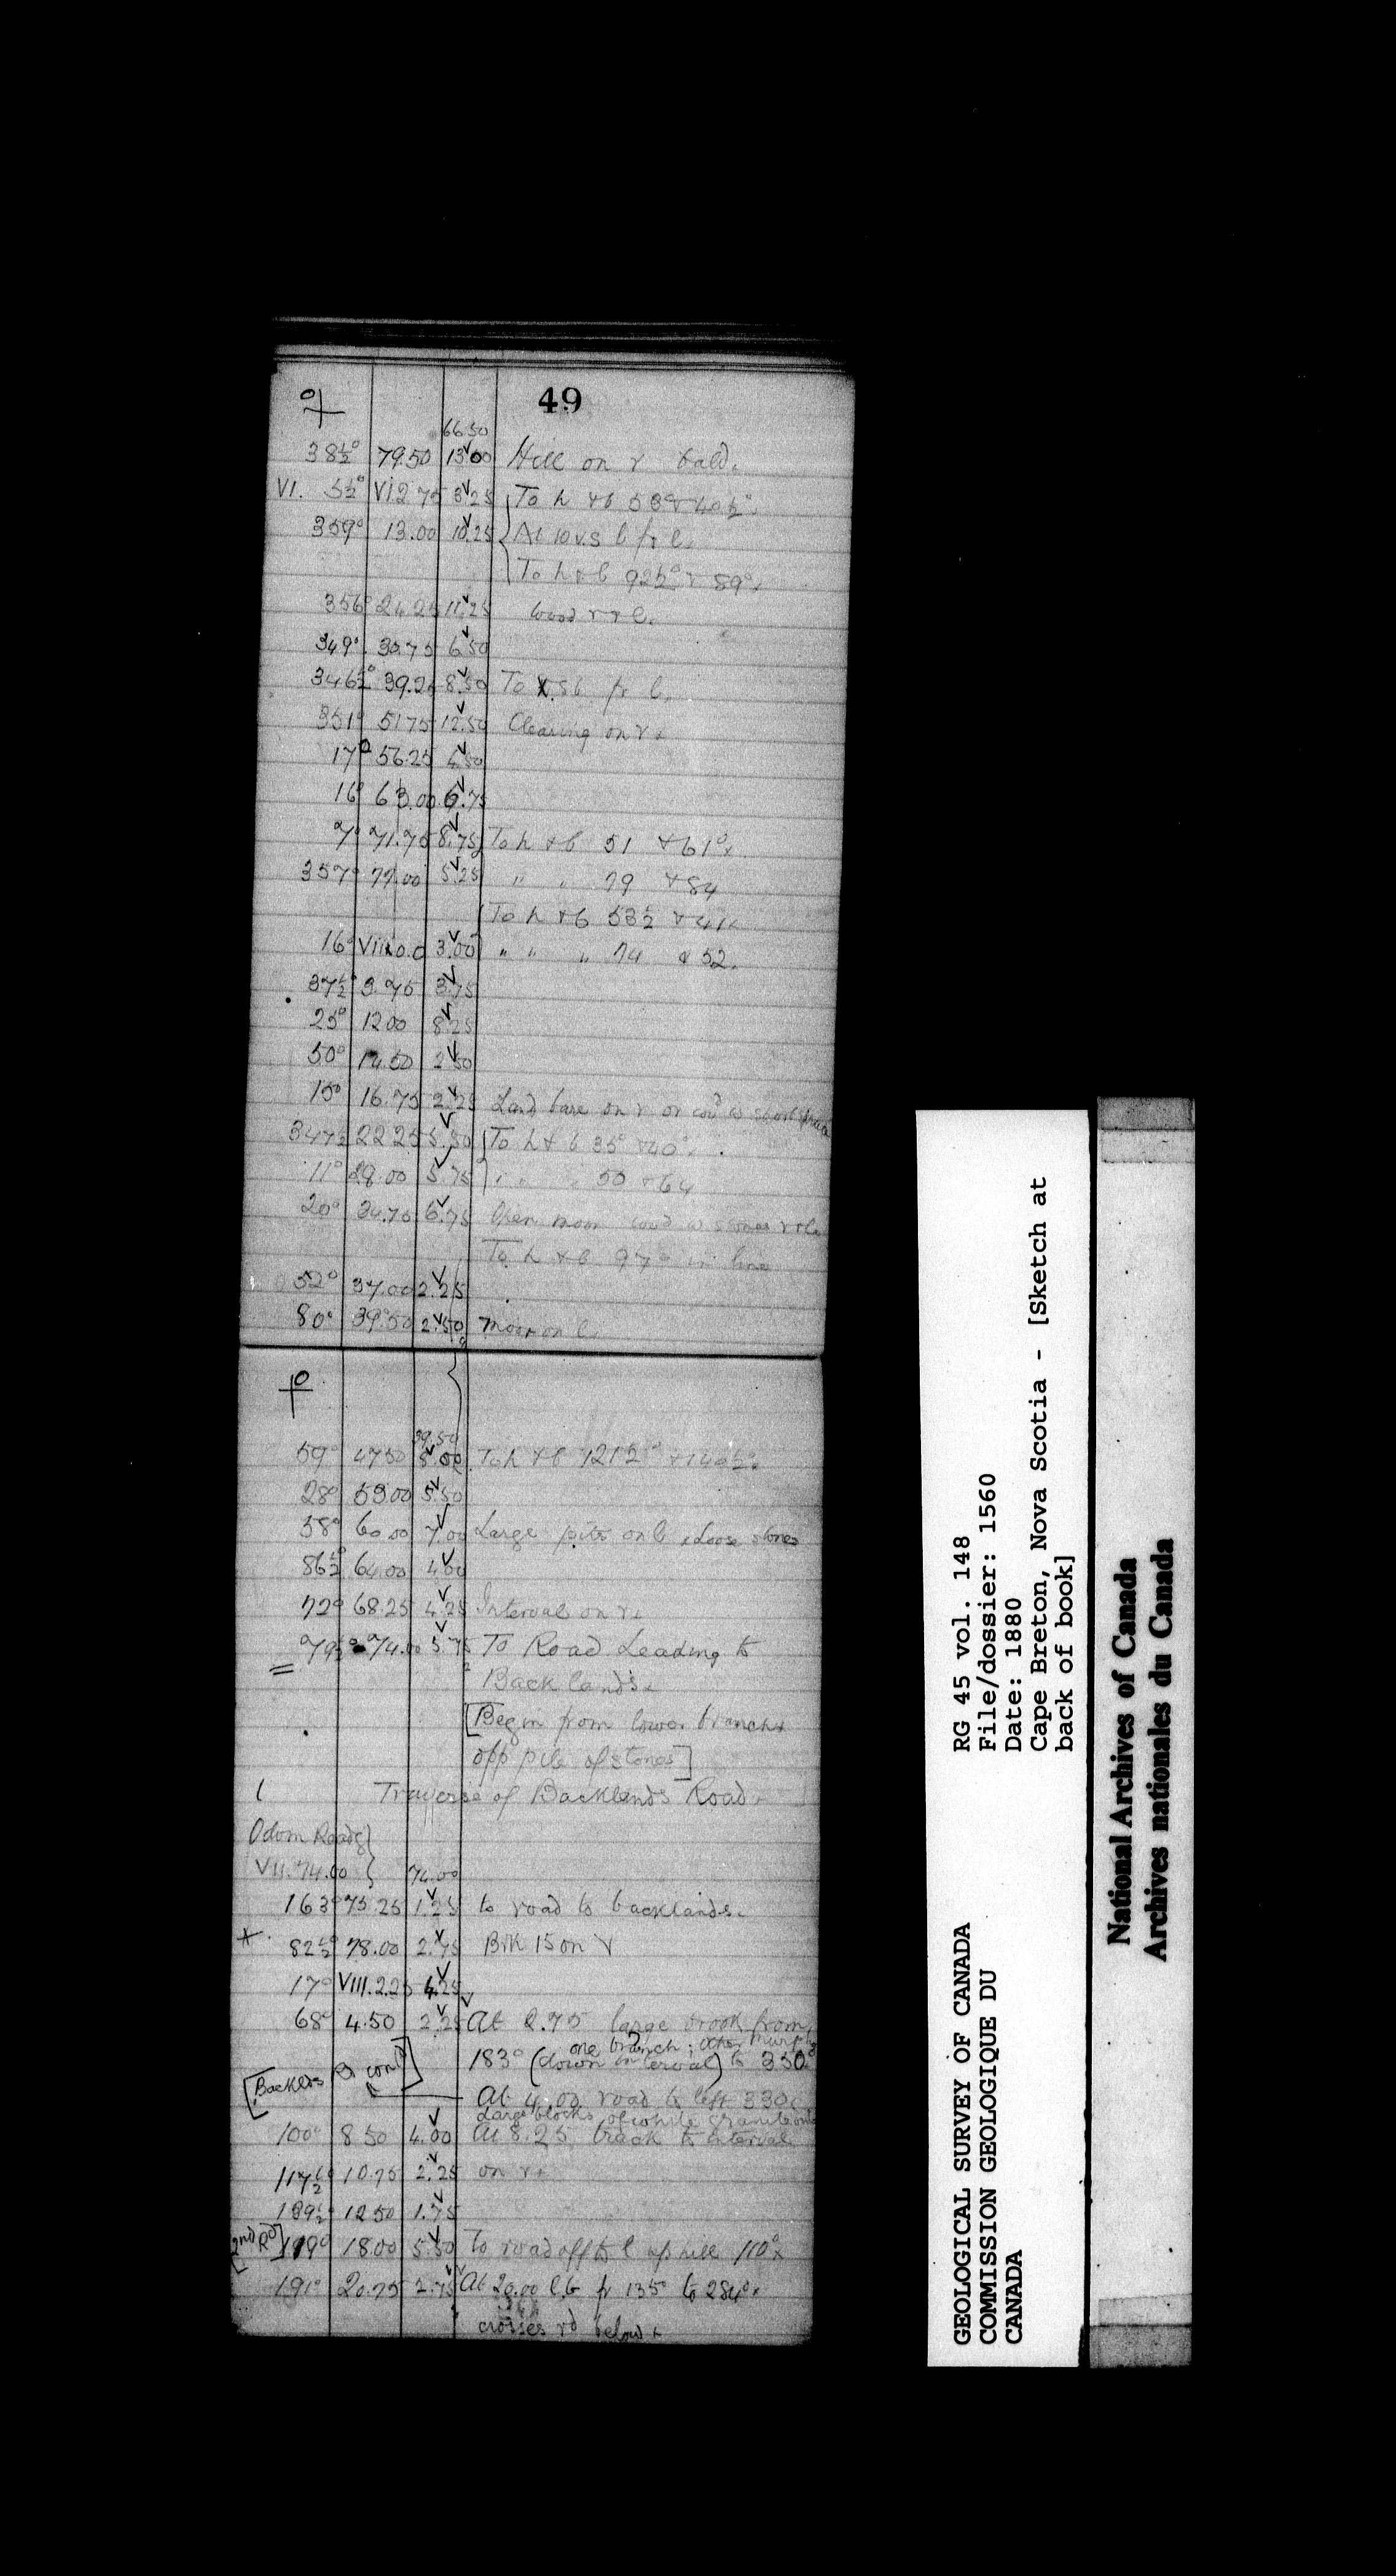 49
66.50
38½° 79.50 13.00 Hill on r bald.
VI. 5½° VI.2.75 3.25 To h & b 53° & 40½°.
359° 13.00 10.25 At 10 v.s b fr l.
To h & b 92½° & 89°.
356° 24.25 11.25 Wood r & l.
349° 30.75 6.50
346½° 39.25 8.50 To v.s b fr l.
351° 51.75 12.50 Clearing on r.
17° 56.25 4.50
16° 63.00 6.75
7° 71.75 8.75 To h & b 51 & 61°.
357° 77.00 5.25 " " 79 & 84
To h & b 53½ & 41.
16° VII.0.0 3.00 " " " 74 & 52.
37½° 3.75 3.75
25° 12.00 8.25
50° 14.50 2.50
15° 16.75 2.25 Land bare on r or cov'd w short
347½ 22.25 5.50 To h & b 35° & 40°.
11° 28.00 5.75 " " " 50 & 64
20° 34.75 6.75 Open moor cov'd w stones r & l
To h & b 97° in line
52° 37.00 2.25
80° 39.50 2.50 Moor on l.
39.50
59° 47.50 8.00 To h & b 121½° & 140½°.
28° 53.00 5.50
58° 60.00 7.00 Large pits on l, loose stones
86½° 64.00 4.00
72° 68.25 4.25 Interval on r.
79½° 74.00 5.75 To Road Leading to
Back lands.
[Begin from lower branch
opp pile of stones]
Traverse of Backlands Road.
Odom Road
VII.74.00 74.00
163° 75.25 1.25 to road to backlands.
82½° 78.00 2.75 Brk 15 on r
17° VIII.2.25 4.25
68° 4.50 2.25 At 2.75 large brook from
one branch; other
183° (down interval) to 350°
[Backlds Rd con'd] At 4.00 road to left 330°
Large blocks of white granite on
100° 8.50 4.00 At 8.25 track to interval
117½° 10.75 2.25 on r.
189½° 12.50 1.75
2nd Rd] 199° 18.00 5.50 To road off to l up hill 110°
191° 20.75 2.75 At 20.00 l.b fr 135° to 284°.
crosses rd below.
GEOLOGICAL SURVEY OF CANADA
COMMISSION GEOLOGIQUE DU
CANADA
RG 45 vol. 148
File/dossier: 1560
Date: 1880
Cape Breton, Nova Scotia - [Sketch at
back of book]
National Archives of Canada
Archives nationales du Canada